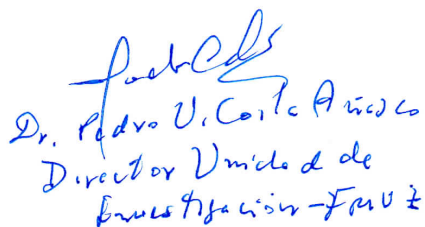 Dr. Pedro U. Coila Añasco
Director Unidad de
Investigación - FMVZ